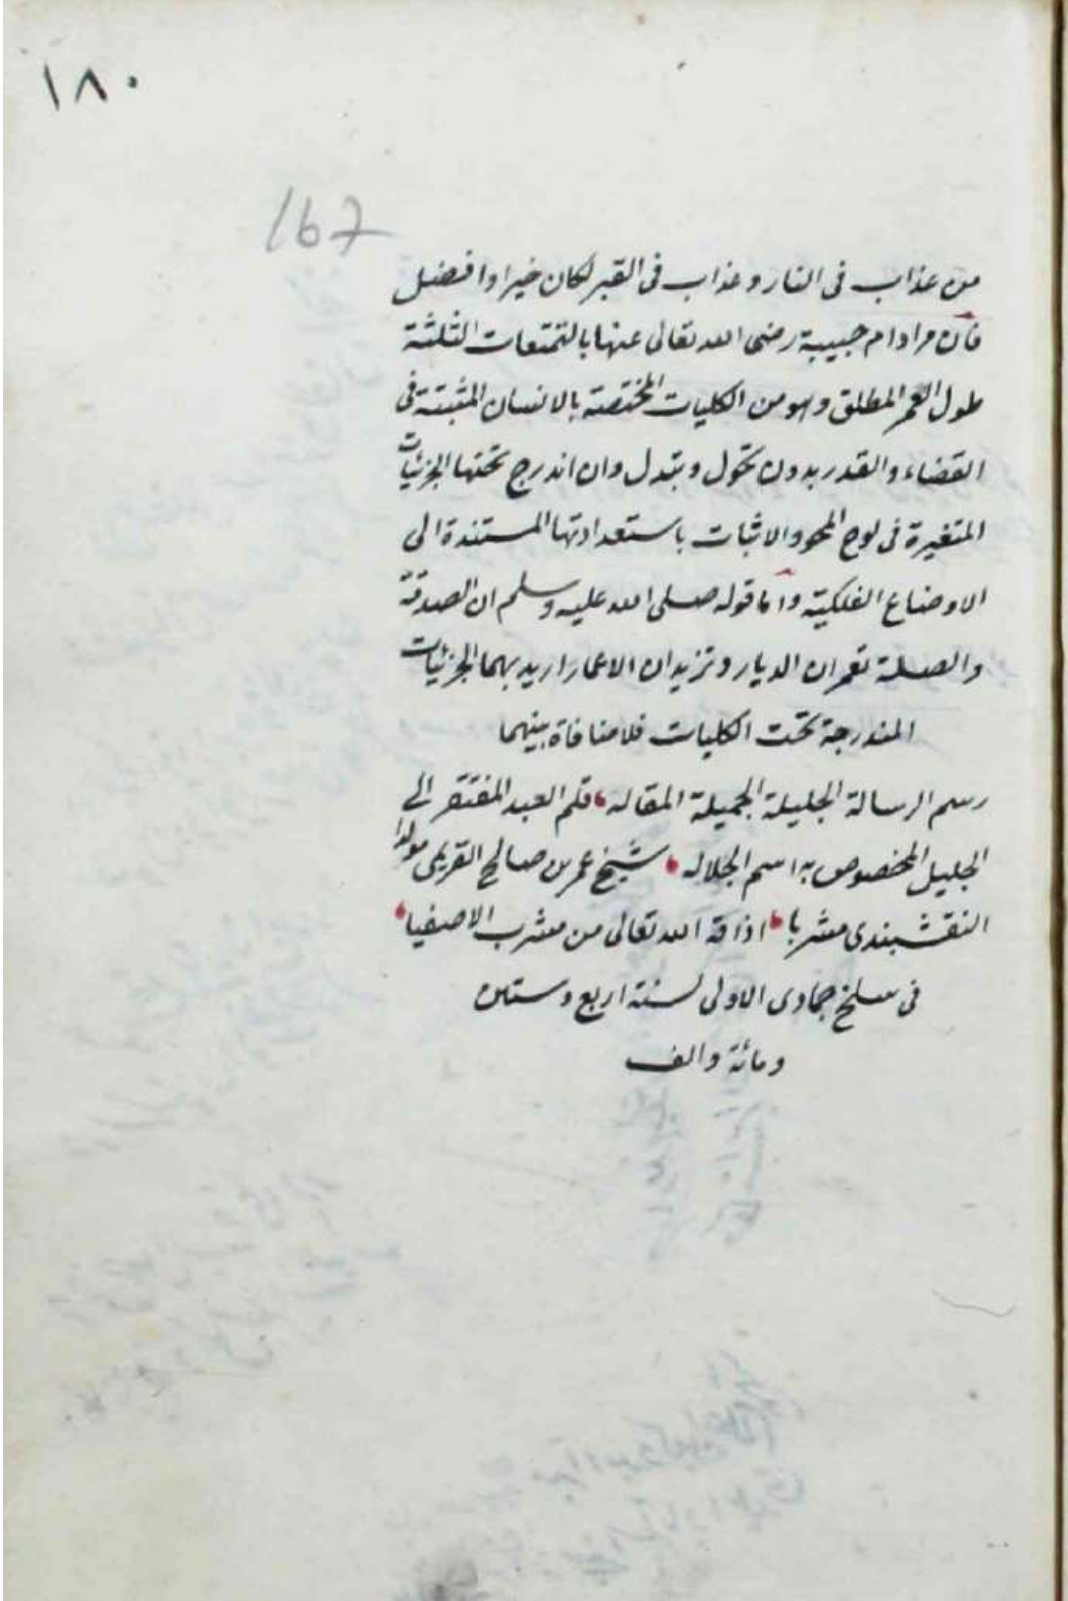 ١٨٠
167
من عذاب فى النار وعذاب فى القبر لكان خيرا وافضل
فان مراد ام حبيبة رضى الله تعالى عنها بالتمتعات الثلثة
طول العمر المطلق وهو من الكليات المختصة بالانسان المثبتة فى
القضاء والقدر بدون تحول وتبدل وان اندرج تحتها الجزئيات
المتغيرة فى لوح المحو والاثبات باستعدادتها المستندة الى
الاوضاع الفلكية واما قوله صلى الله عليه وسلم ان الصدقة
والصلة تعمران الديار وتزيدان الاعمار اريد بهما الجزئيات
المندرجة تحت الكليات فلا منافاة بينهما
رسم الرسالة الجليلة الجميلة المقاله قلم العبد المفتقر الى
الجليل المخصوص به اسم الجلاله شيخ عمر بن صالح القريمى مولدا
النقشبندى مشربا اذاقه الله تعالى من مشرب الاصفيا
فى سلخ جمادى الاولى لسنة اربع وستين
ومائة والف